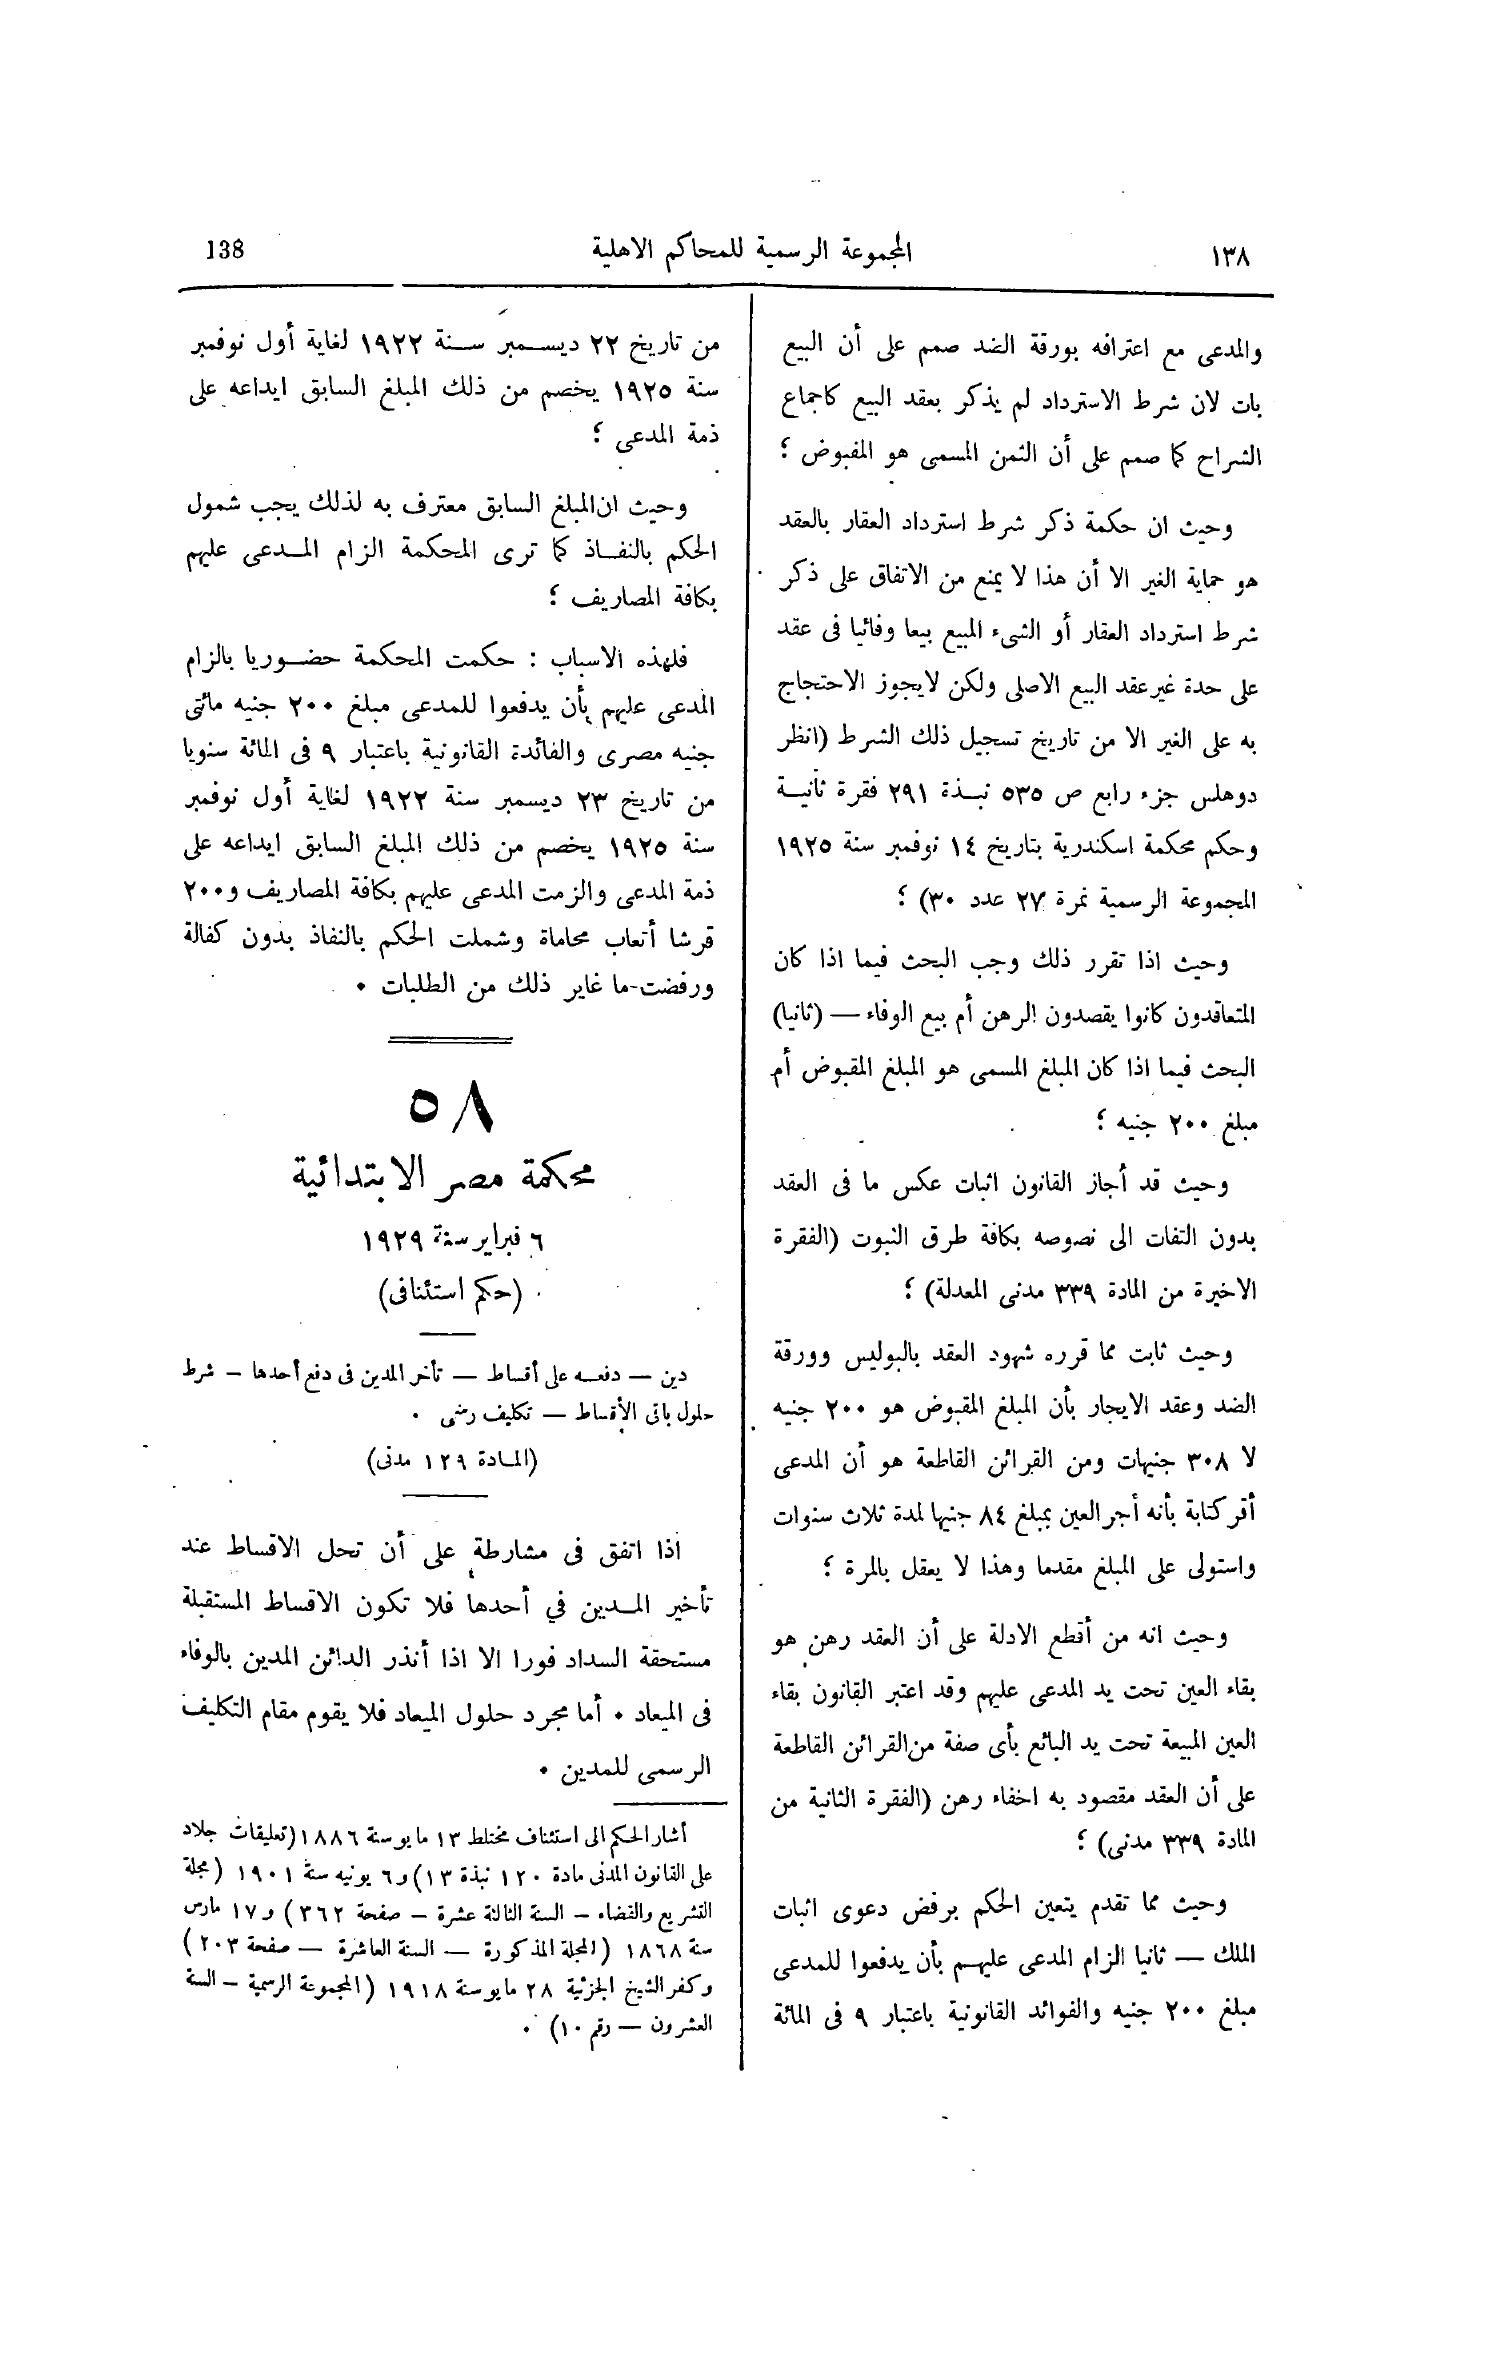 ١٣٨
المجموعة الرسمية للمحاكم الاهلية
138
والمدعى مع اعترافه بورقة الضد صمم على أن البيع
بات لان شرط الاسترداد لم يذكر بعقد البيع كاجماع
الشراح كما صمم على أن الثمن المسمى هو المقبوض ؛
وحيث ان حكمة ذكر شرط استرداد العقار بالعقد
هو حماية الغير الا أن هذا لا يمنع من الاتفاق على ذكر
شرط استرداد العقار أو الشىء المبيع بيعا وفائيا فى عقد
على حدة غير عقد البيع الاصلى ولكن لايجوز الاحتجاج
به على الغير الا من تاريخ تسجيل ذلك الشرط (انظر
دوهلس جزء رابع ص ٥٣٥ نبذة ٢٩١ فقرة ثانية
وحكم محكمة اسكندرية بتاريخ ١٤ نوفمبر سنة ١٩٢٥
المجموعة الرسمية نمرة ٢٧ عدد ٣٠) ؛
وحيث اذا تقرر ذلك وجب البحث فيما اذا كان
المتعاقدون كانوا يقصدون الرهن أم بيع الوفاء — (ثانيا)
البحث فيما اذا كان المبلغ المسمى هو المبلغ المقبوض أم
مبلغ ٢٠٠ جنيه ؛
وحيث قد أجاز القانون اثبات عكس ما فى العقد
بدون التفات الى نصوصه بكافة طرق الثبوت (الفقرة
الاخيرة من المادة ٣٣٩ مدنى المعدلة) ؛
وحيث ثابت مما قرره شهود العقد بالبوليس وورقة
الضد وعقد الايجار بأن المبلغ المقبوض هو ٢٠٠ جنيه
لا ٣٠٨ جنيهات ومن القرائن القاطعة هو أن المدعى
أقر كتابة بأنه أجر العين بمبلغ ٨٤ جنيها لمدة ثلاث سنوات
واستولى على المبلغ مقدما وهذا لا يعقل بالمرة ؛
وحيث انه من أقطع الادلة على أن العقد رهن هو
بقاء العين تحت يد المدعى عليهم وقد اعتبر القانون بقاء
العين المبيعة تحت يد البائع بأى صفة من القرائن القاطعة
على أن العقد مقصود به اخفاء رهن (الفقرة الثانية من
المادة ٣٣٩ مدنى) ؛
وحيث مما تقدم يتعين الحكم برفض دعوى اثبات
الملك — ثانيا الزام المدعى عليهم بأن يدفعوا للمدعى
مبلغ ٢٠٠ جنيه والفوائد القانونية باعتبار ٩ فى المائة
من تاريخ ٢٢ ديسمبر سنة ١٩٢٢ لغاية أول نوفمبر
سنة ١٩٢٥ يخصم من ذلك المبلغ السابق ايداعه على
ذمة المدعى ؛
وحيث ان المبلغ السابق معترف به لذلك يجب شمول
الحكم بالنفاذ كما ترى المحكمة الزام المدعى عليهم
بكافة المصاريف ؛
فلهذه الاسباب : حكمت المحكمة حضوريا بالزام
المدعى عليهم بأن يدفعوا للمدعى مبلغ ٢٠٠ جنيه مائتى
جنيه مصرى والفائدة القانونية باعتبار ٩ فى المائة سنويا
من تاريخ ٢٣ ديسمبر سنة ١٩٢٢ لغاية أول نوفمبر
سنة ١٩٢٥ يخصم من ذلك المبلغ السابق ايداعه على
ذمة المدعى والزمت المدعى عليهم بكافة المصاريف و٢٠٠
قرشا أتعاب محاماة وشملت الحكم بالنفاذ بدون كفالة
ورفضت ما غاير ذلك من الطلبات ٠
٥٨
محكمة مصر الابتدائية
٦ فبراير سنة ١٩٢٩
(حكم استئنافى)
دين — دفعه على أقساط — تأخر المدين فى دفع أحدها — شرط
حلول باقى الأقساط — تكليف رسمى ٠
(المادة ١٢٩ مدنى)
اذا اتفق فى مشارطة على أن تحل الاقساط عند
تأخير المدين في أحدها فلا تكون الاقساط المستقبلة
مستحقة السداد فورا الا اذا أنذر الدائن المدين بالوفاء
فى الميعاد ٠ أما مجرد حلول الميعاد فلا يقوم مقام التكليف
الرسمى للمدين ٠
أشار الحكم الى استئناف مختلط ١٣ مايو سنة ١٨٨٦ (تعليقات جلاد
على القانون المدنى مادة ١٢٠ نبذة ١٣) و٦ يونيه سنة ١٩٠١ (مجلة
التشريع والقضاء — السنة الثالثة عشرة — صفحة ٣٦٢) و١٧ مارس
سنة ١٨٦٨ (المجلة المذكورة — السنة العاشرة — صفحة ٢٠٣)
وكفر الشيخ الجزئية ٢٨ مايو سنة ١٩١٨ (المجموعة الرسمية — السنة
العشرون — رقم ١٠) ٠